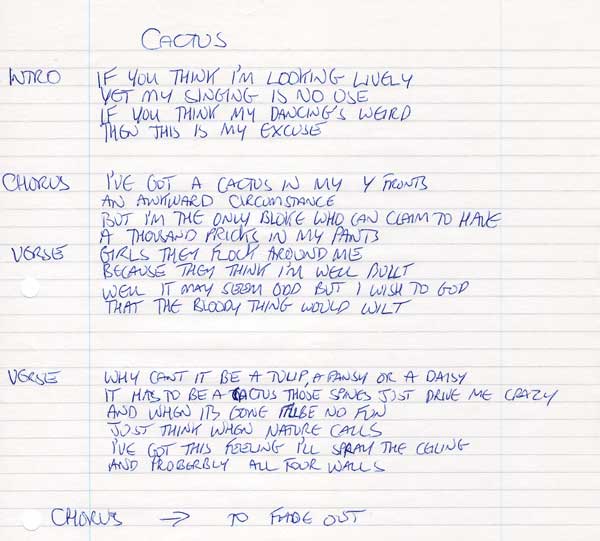 CACTUS
INTRO IF YOU THINK I'M LOOKING LIVELY
YET MY SINGING IS NO USE
IF YOU THINK MY DANCING'S WEIRD
THEN THIS IS MY EXCUSE
CHORUS I'VE GOT A CACTUS IN MY Y FRONTS
AN AWKWARD CIRCUMSTANCE
BUT I'M THE ONLY BLOKE WHO CAN CLAIM TO HAVE
A THOUSAND PRICKS IN MY PANTS
VERSE GIRLS THEY FLOCK AROUND ME
BECAUSE THEY THINK I'M WELL BUILT
WELL IT MAY SEEM ODD BUT I WISH TO GOD
THAT THE BLOODY THING WOULD WILT
VERSE WHY CAN'T IT BE A TULIP, A PANSY OR A DAISY
IT HAS TO BE A CACTUS THOSE SPINES JUST DRIVE ME CRAZY
AND WHEN IT'S GONE IT'LL BE NO FUN
JUST THINK WHEN NATURE CALLS
I'VE GOT THIS FEELING I'LL SPRAY THE CEILING
AND PROBERBLY ALL FOUR WALLS
CHORUS → TO FADE OUT